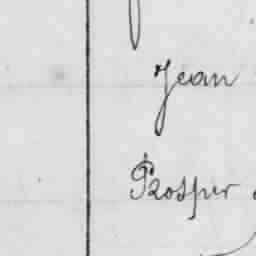 Jean
Prosper